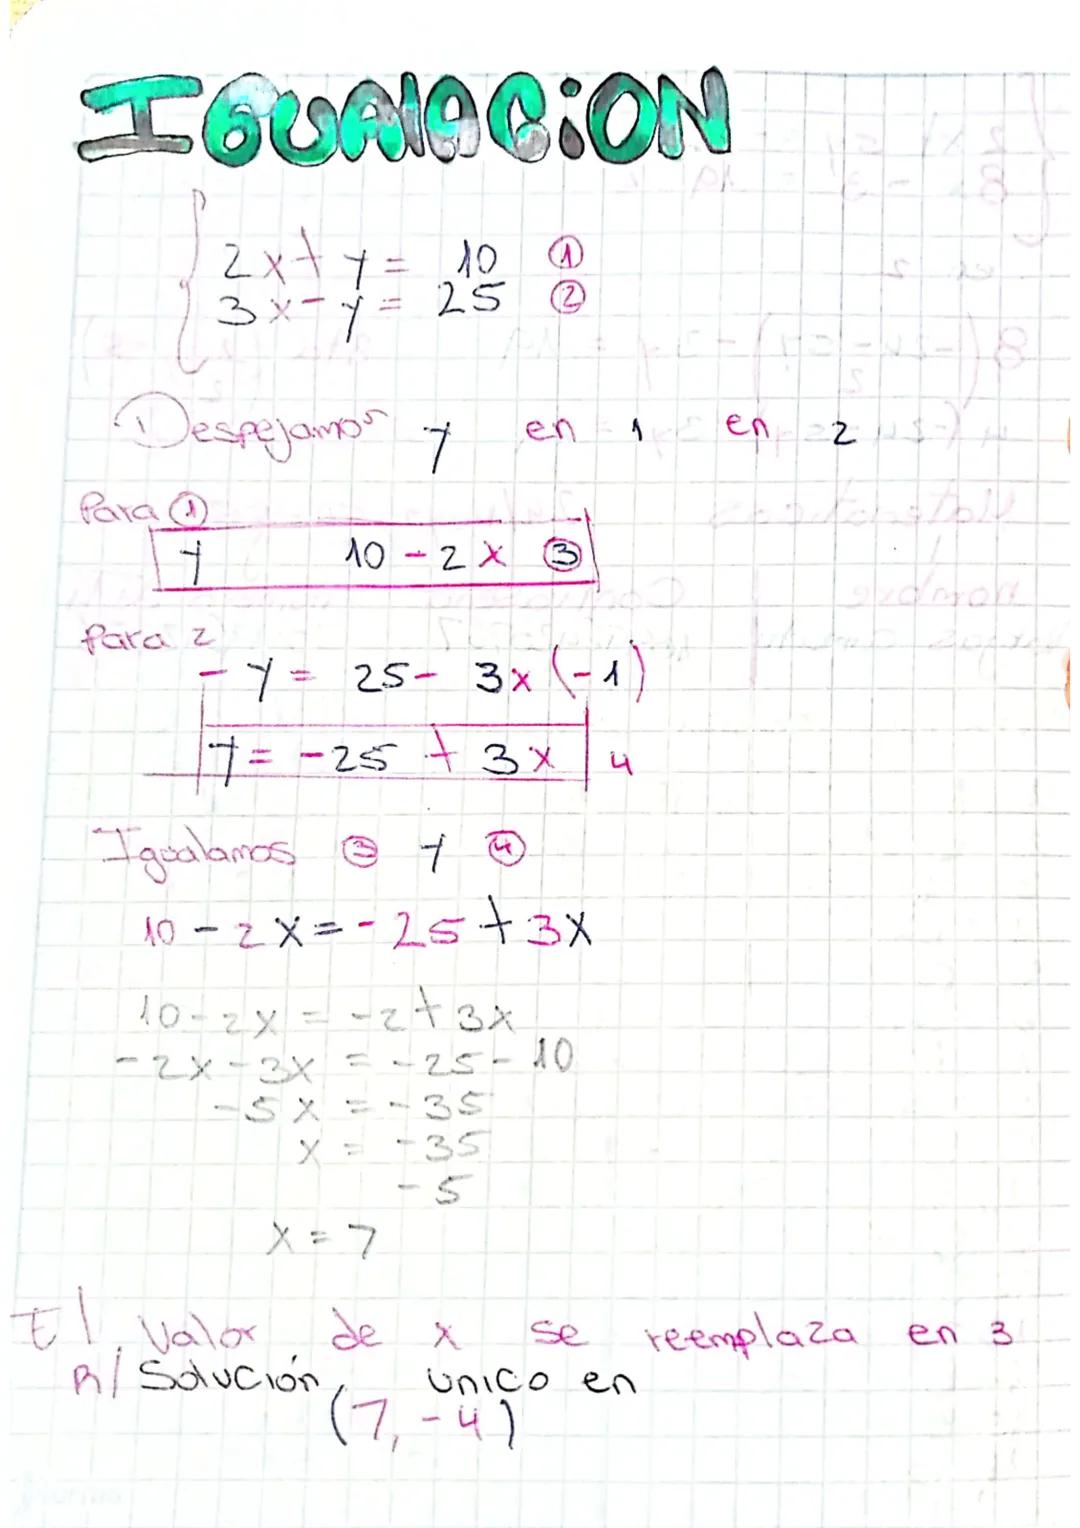 IGUALACiON
2x + y = 10 ①
3x - y = 25 ②
Despejamos y en 1 en 2
Para ①
y 10 - 2x ③
Para 2
- y = 25 - 3x (-1)
y = -25 + 3x 4
Igualamos ③ y ④
10 - 2x = -25 + 3x
10 - 2x = -2 + 3x
-2x - 3x = -25 - 10
-5x = -35
x = -35
-5
x = 7
El valor de x se reemplaza en 3
R/ Solución, unico en
(7, -4)